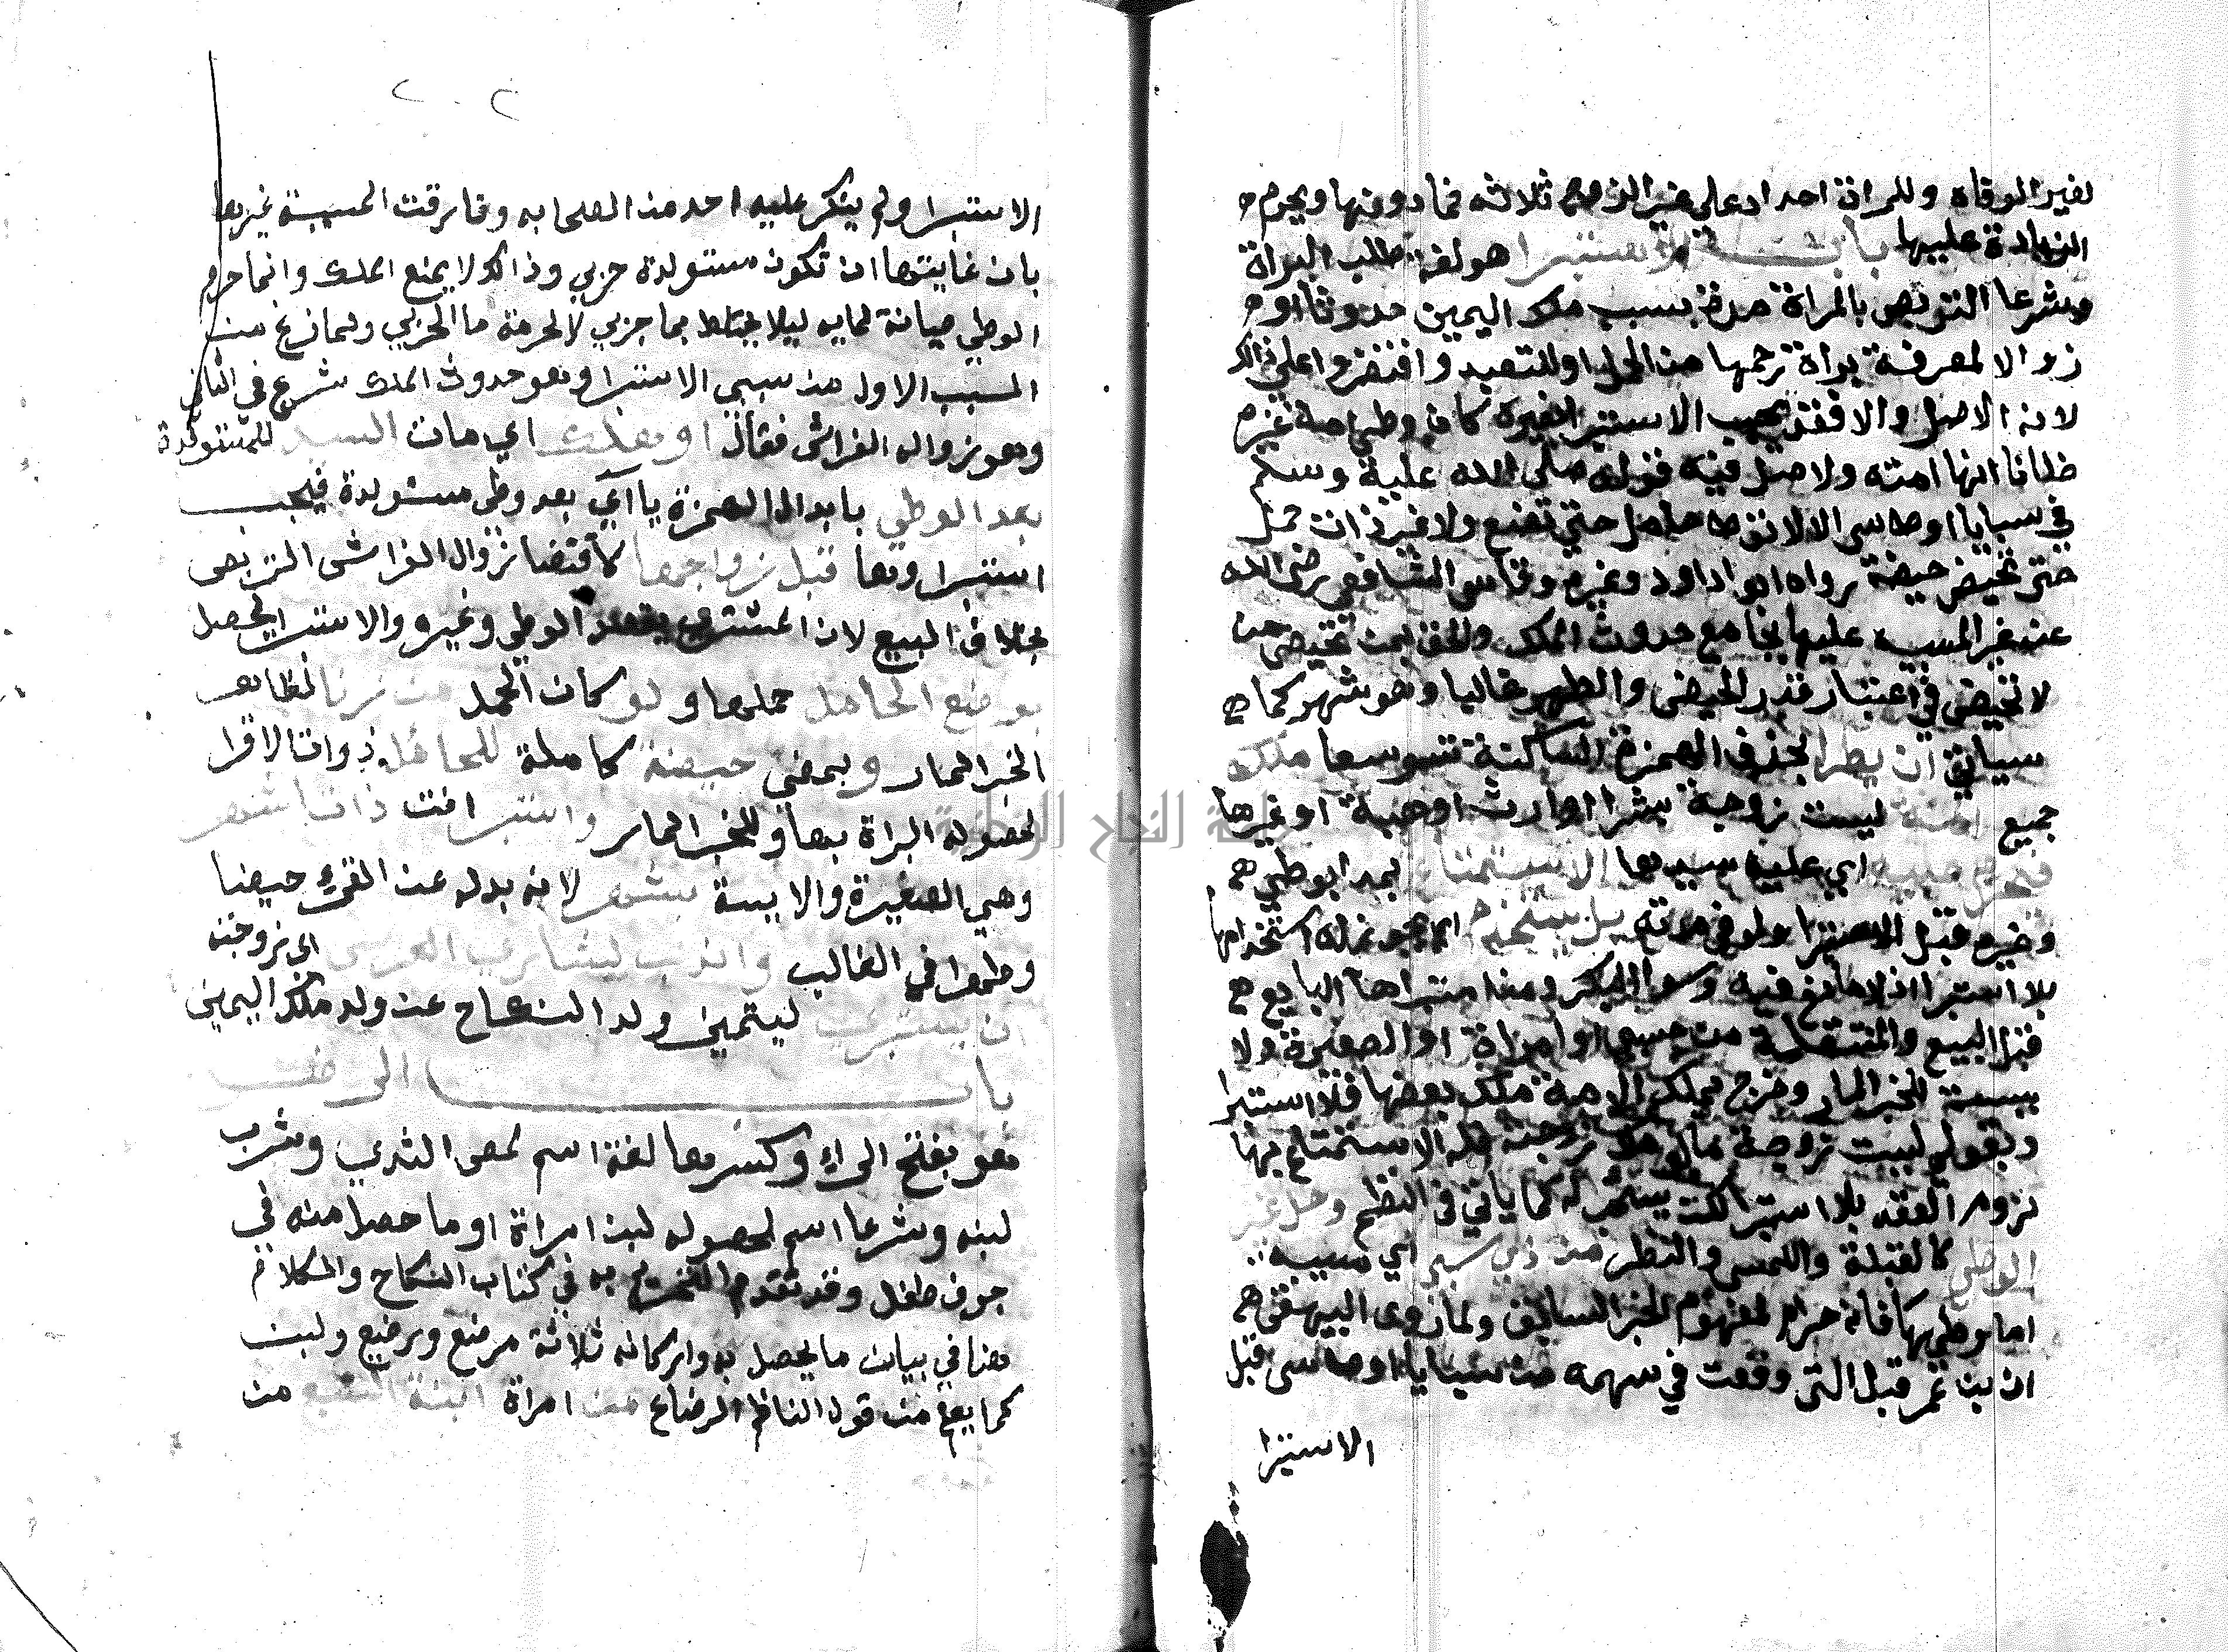 لغير الوفاه وللمراة احداد على غير الزوج ثلاثه فما دونها ويحرم
الزيادة عليها باب الاستبرا هو لغة طلب البراة
وشرعا التربص بالمراة مدة بسبب ملك اليمين حدوثا او
زوالا لمعرفة براة رحمها من الحمل او للتعبد واقتصروا على ذالك
لانه الاصل والا فقد يجب الاستبرا لغيره كان وطي امة غيره
ظانا انها امته والاصل فيه قوله صلى الله علية وسلم
في سبايا اوطاس الا لا توطا حامل حتى تضع ولا غير ذات حمل
حتى تحيض حيضة رواه ابو اداود وغيره وقاس الشافعي رضى الله
عنه غير المسبية عليها بجامع حدوث الملك والحق بمن تحيض من
لا تحيض في اعتبار قدر الحيض والطهر غالبا وهو شهر كما
سياتي ان يطرا بحذف الهمزة الساكنة توسعا ملك
جميع امة ليست زوجة بشرا او ارث او هبة او غيرها
فيحرم عليه اي على سيدها الاستمتاع بها بوطي
وغيره قبل الاستبرا ولو في مدته بل يستخدم اي يجوز له استخدامها
بلا استبرا اذ لا مانع فيه وسوا البكر ومن استبراها البايع
قبل البيع والمنتقلة من صبي او امراة او الصغيرة ولا
يسة للخبر المار وخرج بملك الامة ملك بعضها فلا استبرا
وبقولي ليست زوجة مالو ملك زوجته فله الاستمتاع بها
لزوما لعقد بلا استبرا لكن يستحب له كما ياتي في النظم وحل غير
الوطي كالقبلة واللمس والنظر من ذي سبي اي مسبية
اما وطيها فانه حرام لمفهوم الخبر السابق ولما روى البيهقي
ان بن عمر قبل التي وقعت في سهمه من سبايا اوطاس قبل
الاستبرا
٢٠٢
الاستبرا ولم ينكر عليه احد من الصحابه وفارقت المسبية غيرها
بان غايتها ان تكون مستولدة حربي وذالك لا يمنع الملك وانما حرم
الوطي صيانة لمايه ليلا يختلط بما حربي لا لحرمة ما الحربي ولما فرغ من
السبب الاول من سببي الاستبرا وهو حدوث الملك شرع في الثاني
وهو زوال الفراش فقال او هلك اي مات السيد للمستولدة
بعد الوطي بابدال الهمزة يا اي بعد وطي مستولدة فيجب
استبراوها قبل زواجها لاقتضا زوال الفراش التربص
بخلاف البيع لان المشتري يقصد الوطي وغيره والاستبرا يحصل
بوضع الحامل حملها ولو كان الحمل من زنا لظاهر
الخبر المار وبمضي حيضة كاملة للحائل ذوات الاقرا
لحصول البراة بها وللخبر المار واستبرات ذات اشهر
وهي الصغيرة والايسة بشهر لانه بدل عن القرئ حيضا
وطهرا في الغالب واندب لشاري العرس اى زوجته
ان يستبري ليتميز ولد النكاح عن ولد ملك اليمين
باب الرضاع
هو بفتح الراء وكسرها لغة اسم لمص الثدي وشرب
لبنه وشرعا اسم لحصول لبن امراة او ما حصل منه في
جوف طفل وقد تقدم التحريم به في كتاب النكاح والكلام
هنا في بيان ما يحصل به واركانه ثلاثة مرضع ورضيع ولبن
كما يعلم من قول الناظم الرضاع من امراة ابنة التسع من